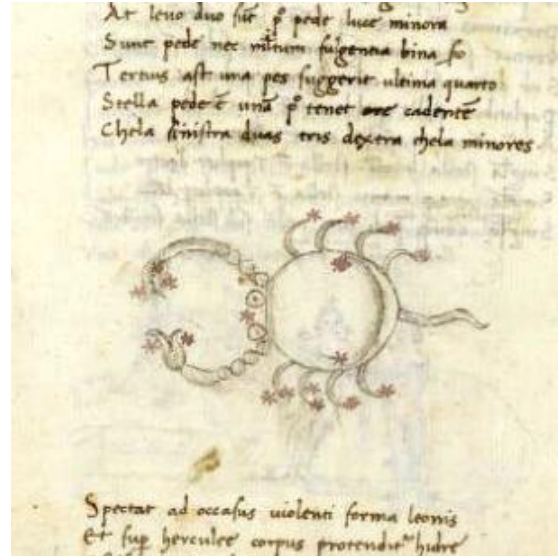 At levo duo fūt p° pede luce minora
Sunt pede nec m̄ltum fulgentia bina so
Tertius ast una pes suggerit ultima quarto
Stella pede ē una p° tenet ore cadentē
Chela sinistra duas tris dextra chela minores
Spectat ad occasus violenti forma leonis
Et sup herculee corpus protendit hidre